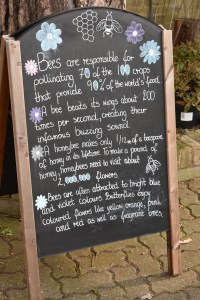 Bees are responsible for
pollinating 70 of the 100 crops
that provide 90% of the world's food
A bee beats its wings about 200
times per second, creating their
infamous buzzing sound.
A honeybee makes only 1/12th of a teaspoon
of honey in its lifetime. To make a pound of
honey, honeybees need to visit about
2,000,000 flowers.
Bees are often attracted to bright blue
and violet colours. Butterflies enjoy
coloured flowers like yellow, orange, pink
and red as well as fragrant ones.